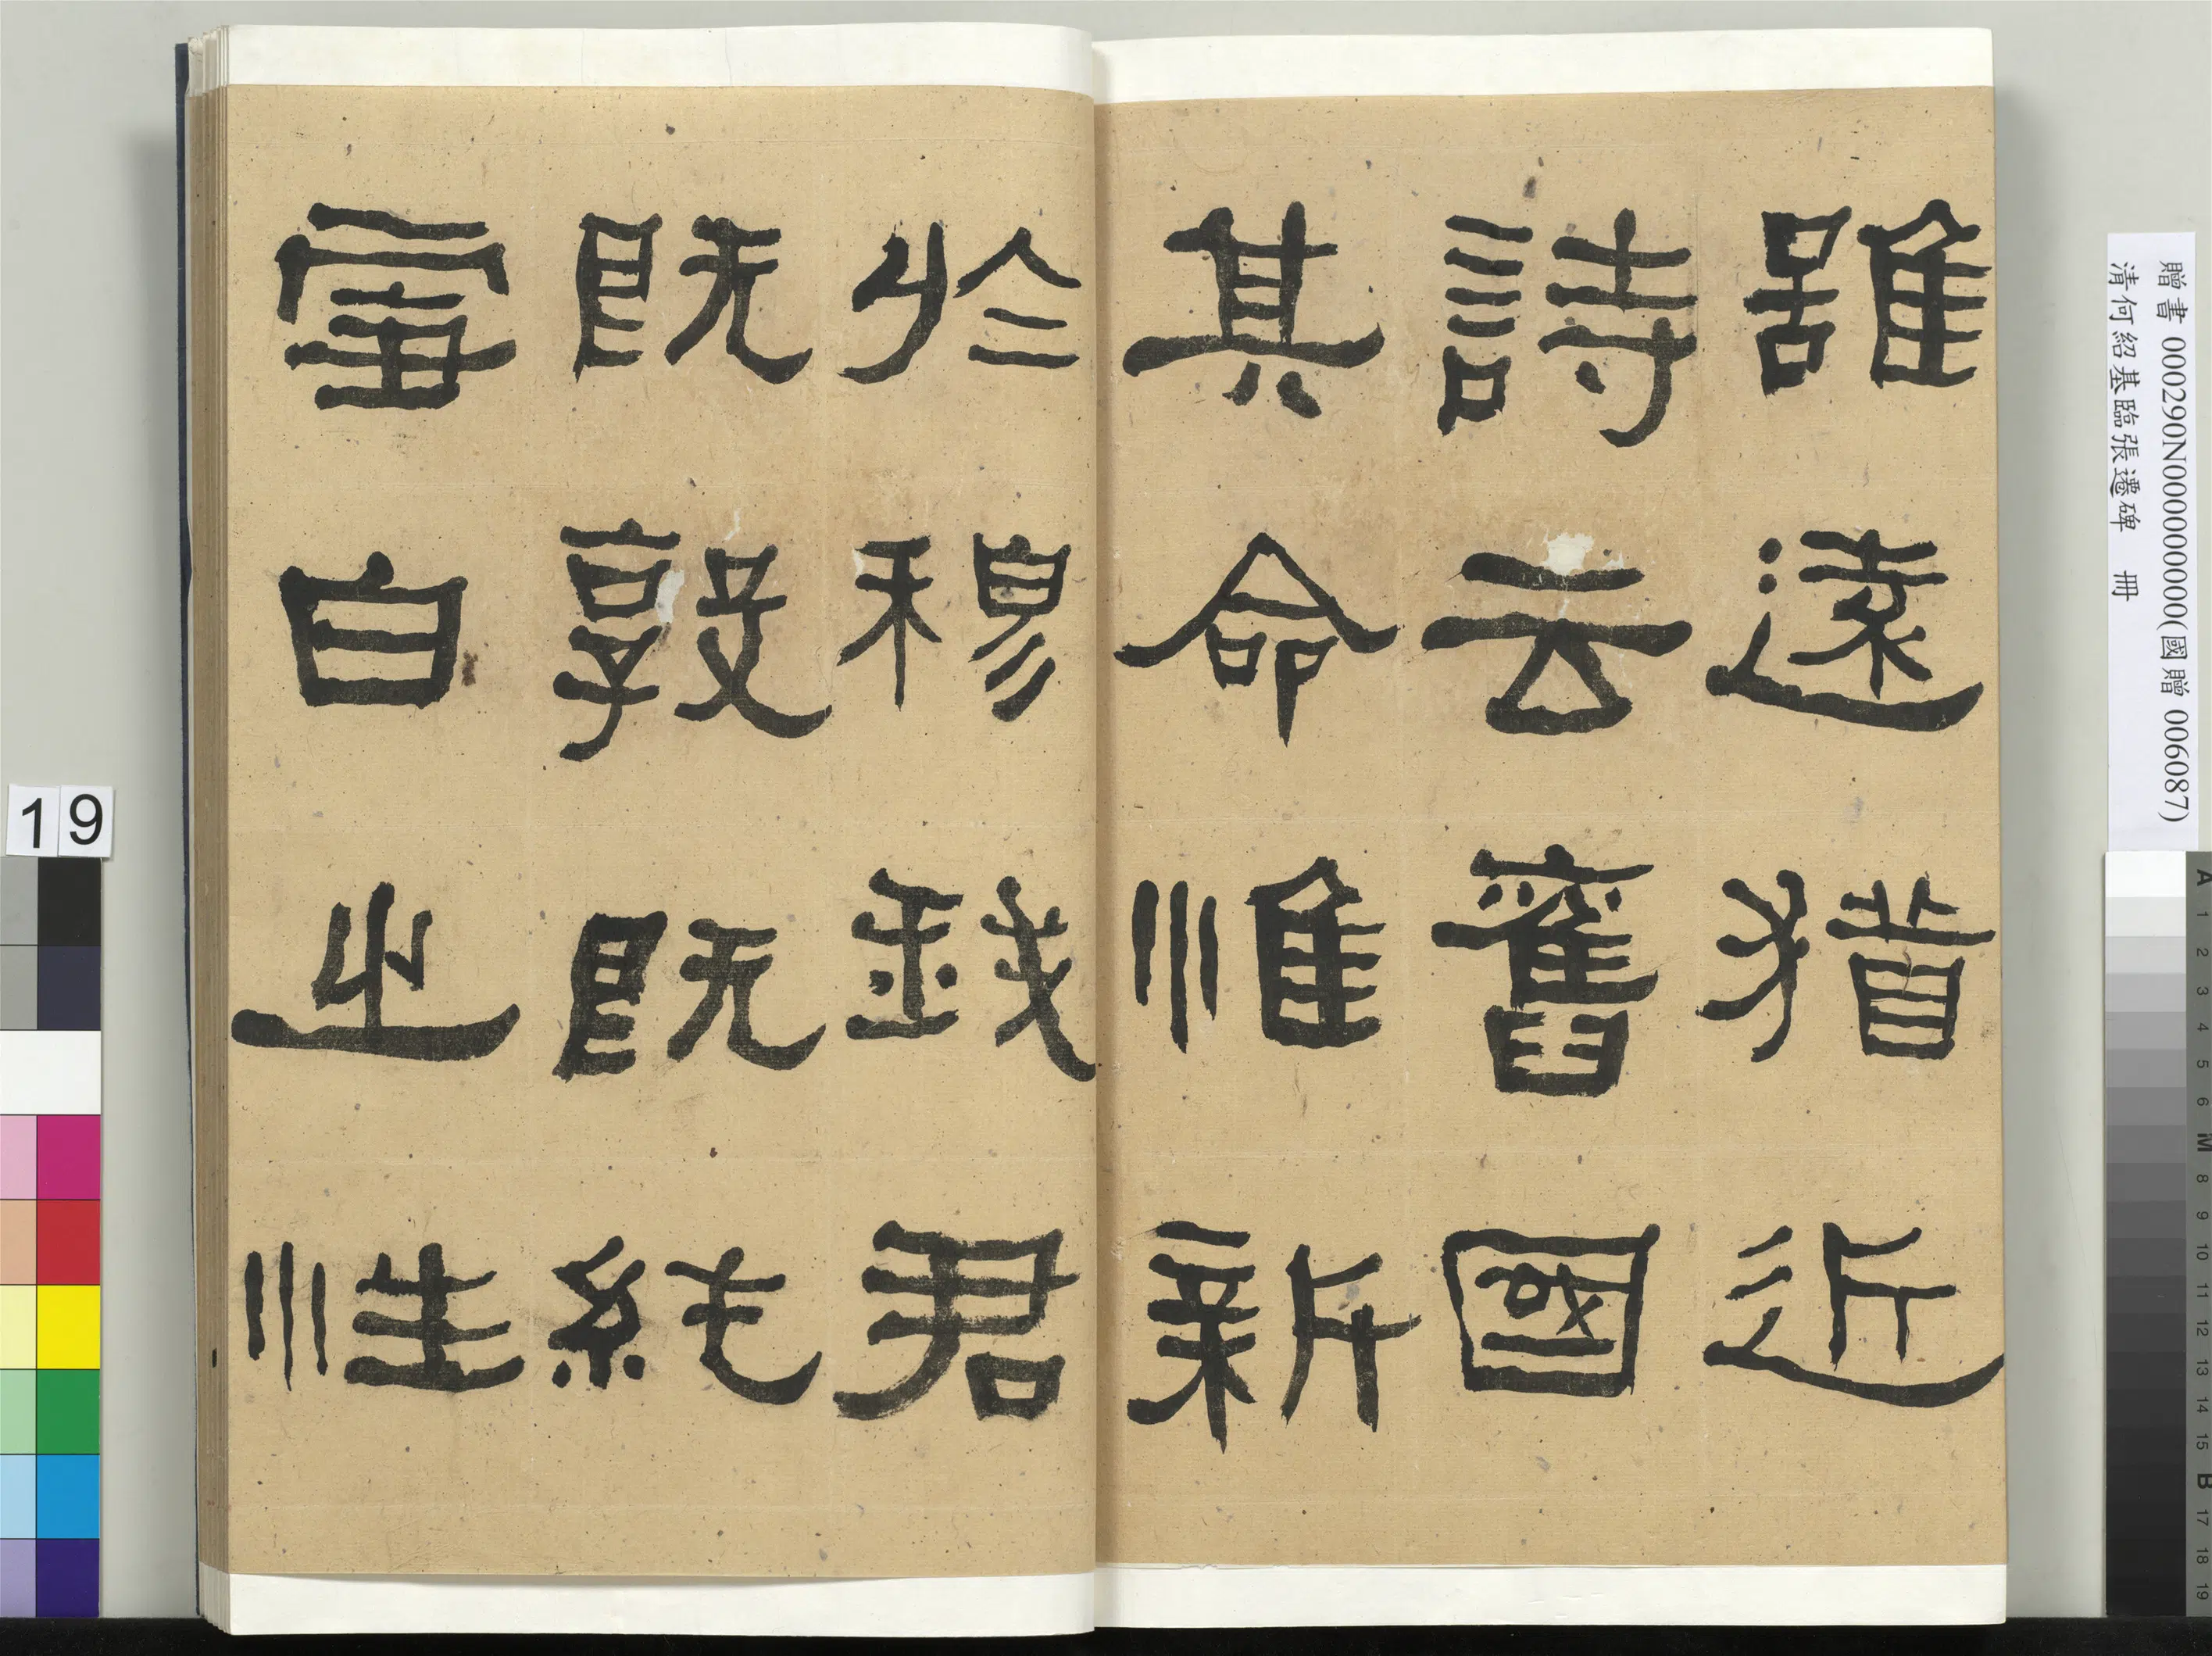 雖遠猶近
詩云舊國
其命惟新
於穆我君
既敦既純
雪白之性
贈書 000290N000000000(國贈 006087)
清何紹基臨張遷碑 冊
19
A 1 2 3 4 5 6 M 8 9 10 11 12 13 14 15 B 17 18 19